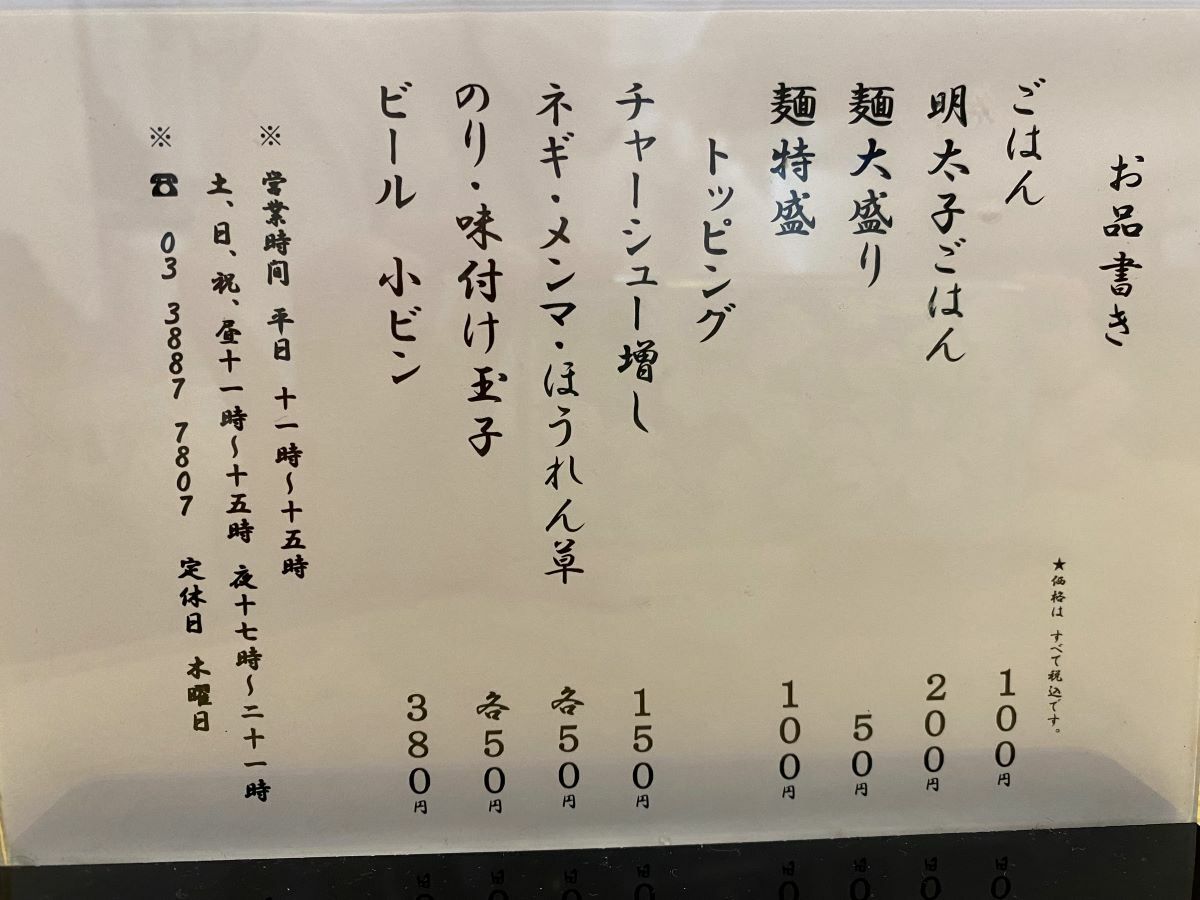 お品書き
★価格は すべて税込です。
ごはん 100円
明太子ごはん 200円
麺大盛り 50円
麺特盛 100円
トッピング
チャーシュー増し 150円
ネギ・メンマ・ほうれん草 各50円
のり・味付け玉子 各50円
ビール 小ビン 380円
※ 営業時間 平日 十一時～十五時
土、日、祝、昼十一時～十五時 夜十七時～二十一時
※ ☎ 03 3887 7807 定休日 木曜日